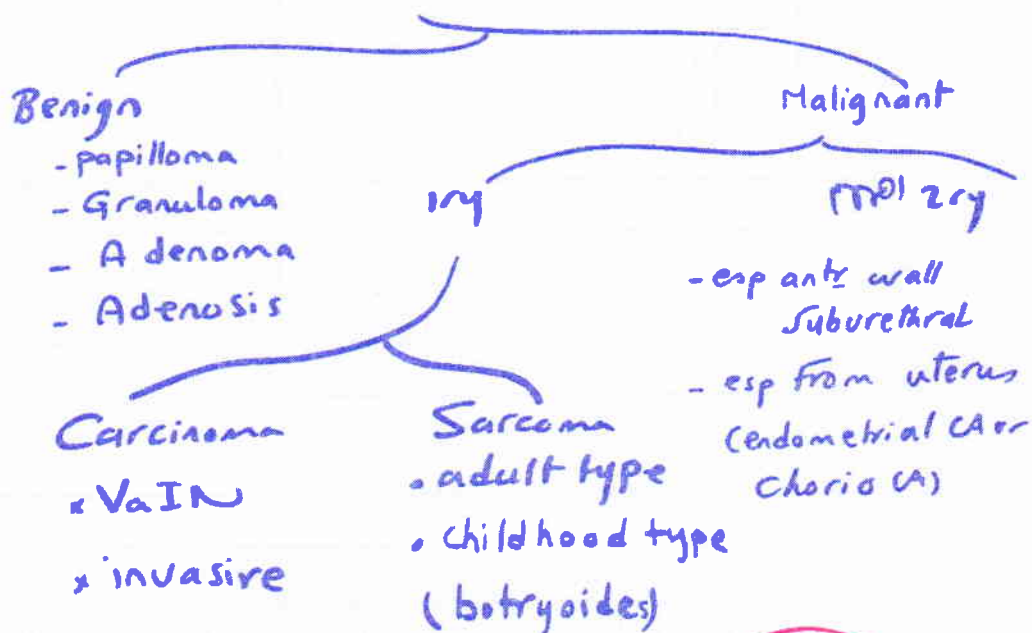 Benign
- papilloma
- Granuloma
- Adenoma
- Adenosis
Malignant
1ry
2ry
- esp antr wall
suburethral
- esp from uterus
(endometrial CA or
Chorio CA)
Carcinoma
x VaIN
x invasive
Sarcoma
• adult type
• childhood type
(botryoides)